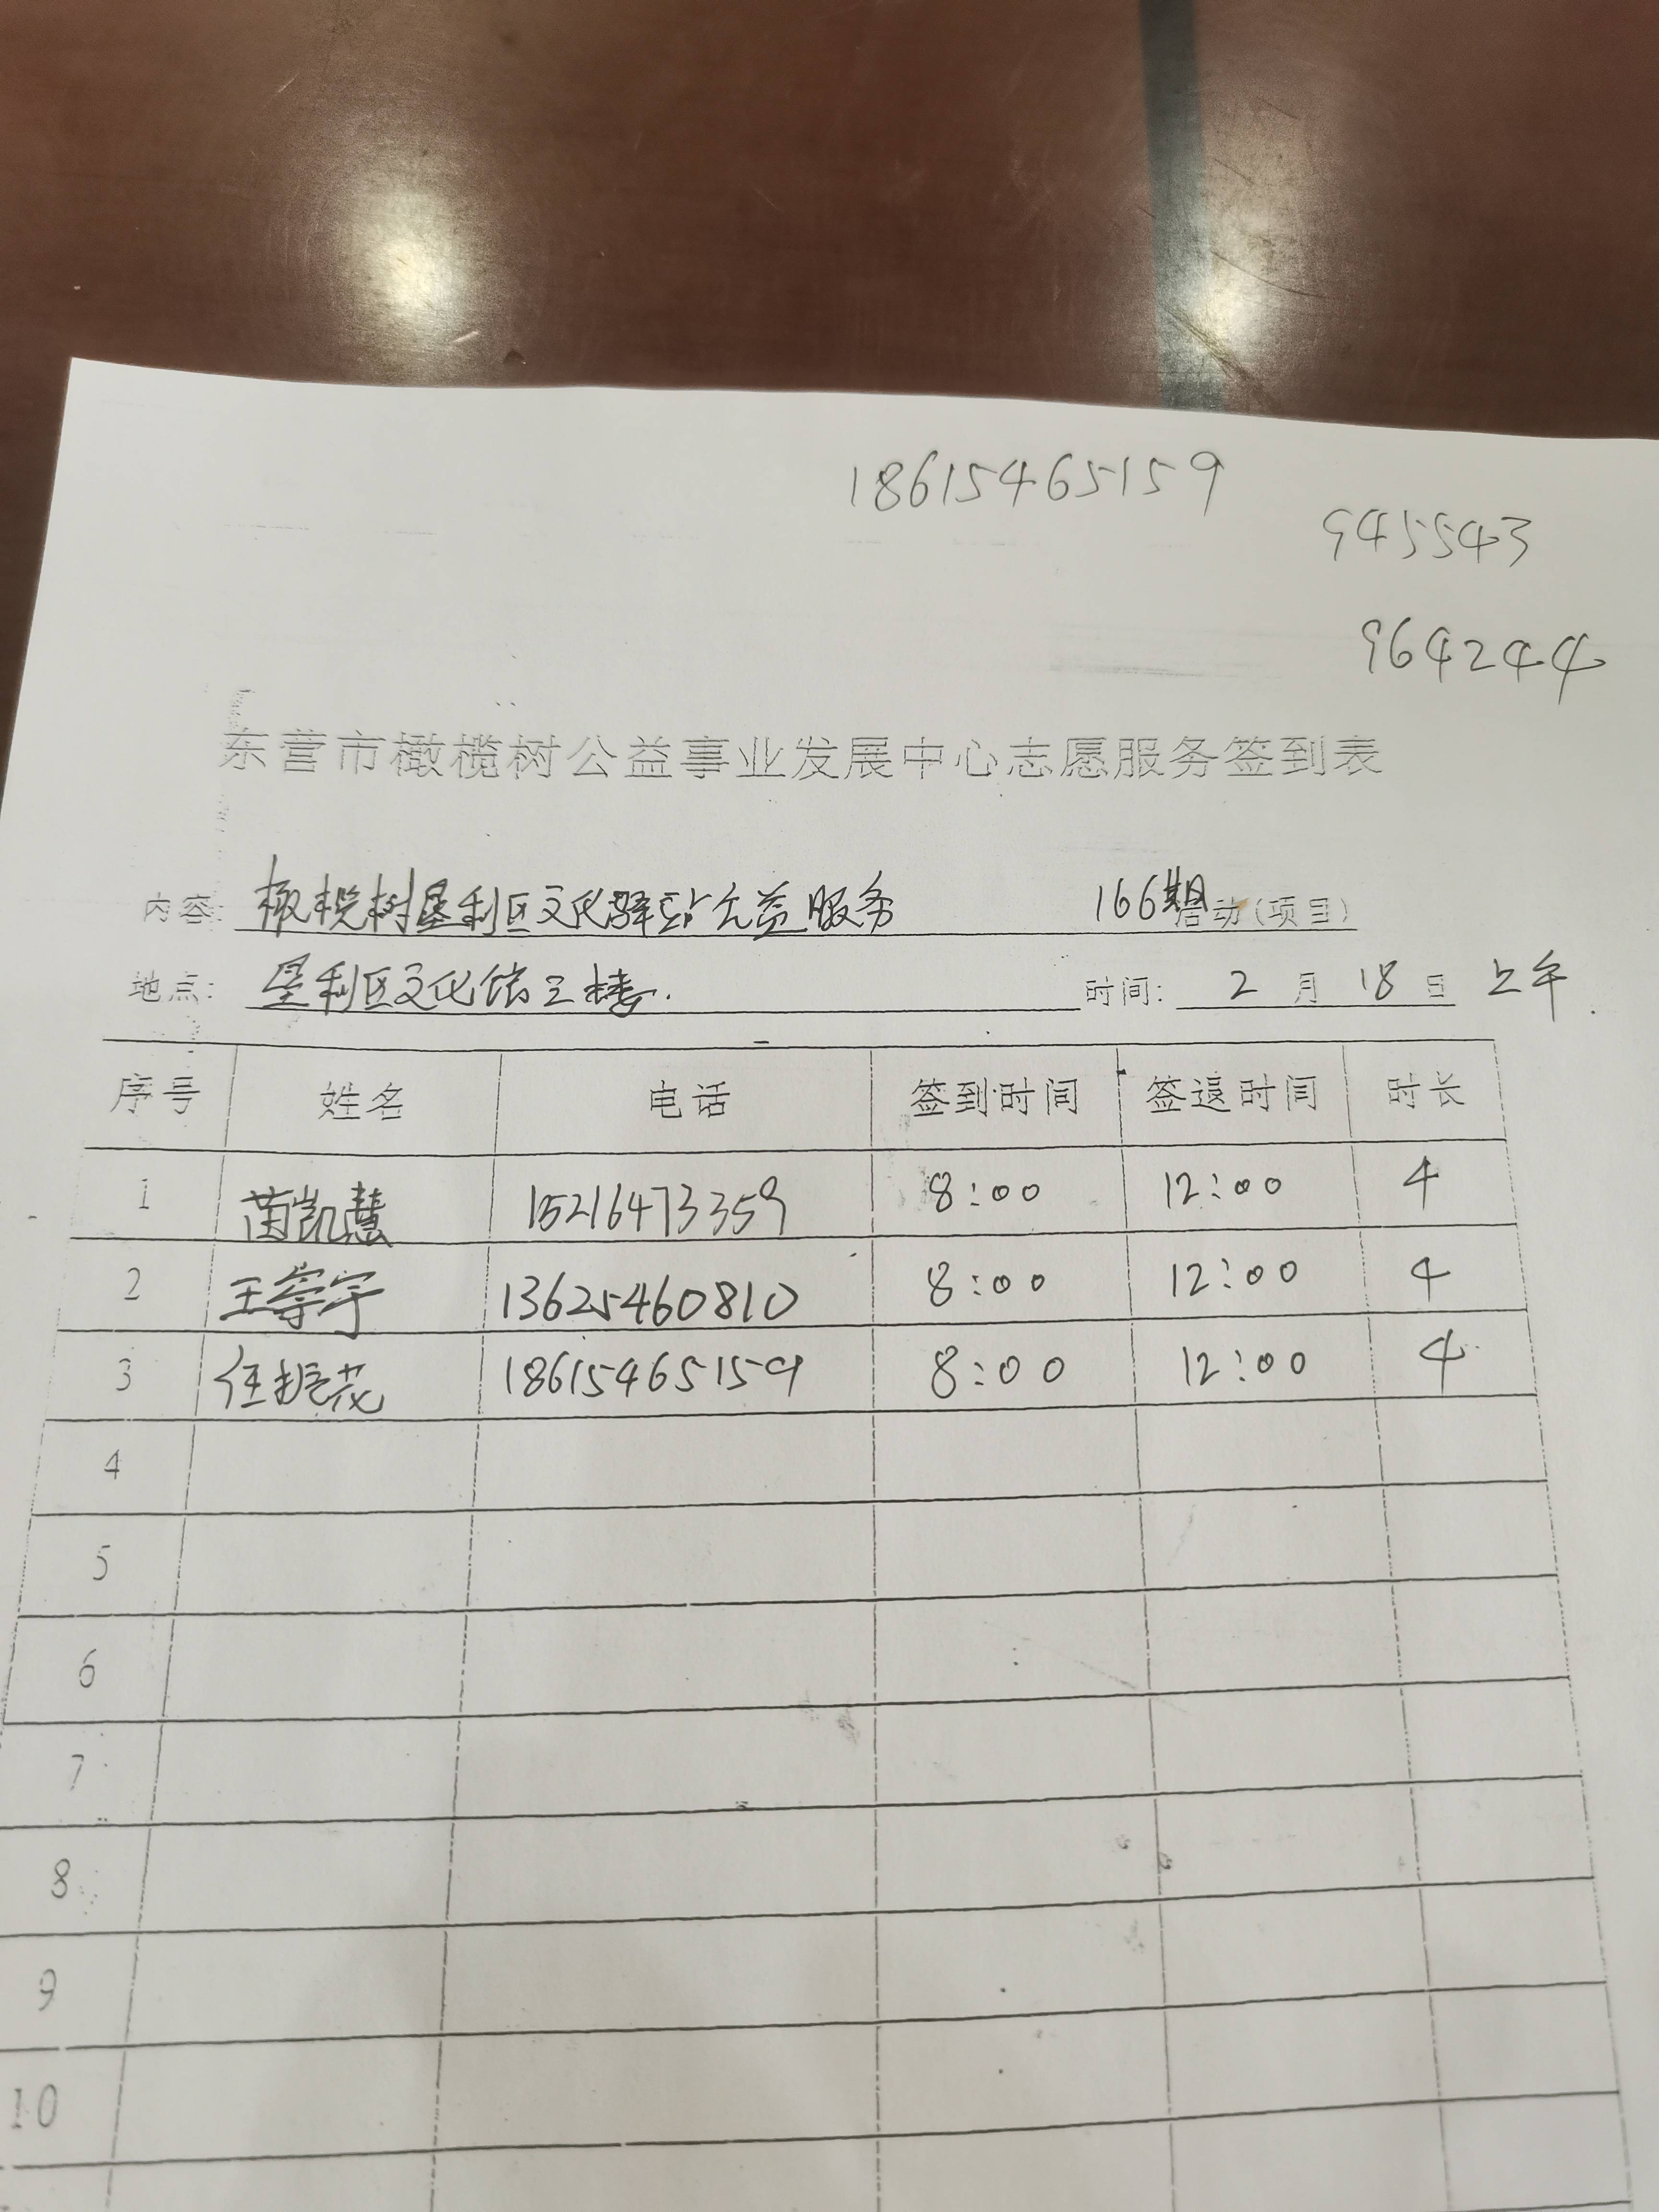 18615465159
945543
964244
东营市橄榄树公益事业发展中心志愿服务签到表
内容: 橄榄树垦利区文化驿站公益服务 166期活动(项目)
地点: 垦利区文化馆三楼. 时间: 2 月 18 日 上午
序号 姓名 电话 签到时间 签退时间 时长
1 苗凯慧 15216473359 8:00 12:00 4
2 王宇 13625460810 8:00 12:00 4
3 任振花 18615465159 8:00 12:00 4
4
5
6
7
8
9
10